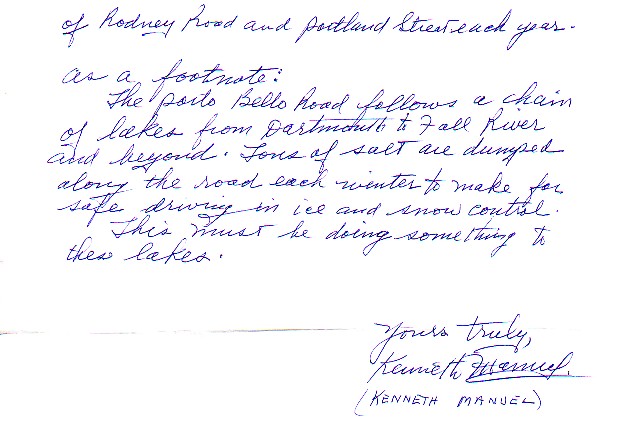 of Rodney Road and Portland Street each year.
As a footnote:
The Porto Bello Road follows a chain
of lakes from Dartmouth to Fall River
and beyond. Tons of salt are dumped
along the road each winter to make for
safe driving in ice and snow control.
This must be doing something to
these lakes.
Yours truly,
Kenneth Manuel.
(KENNETH MANUEL)